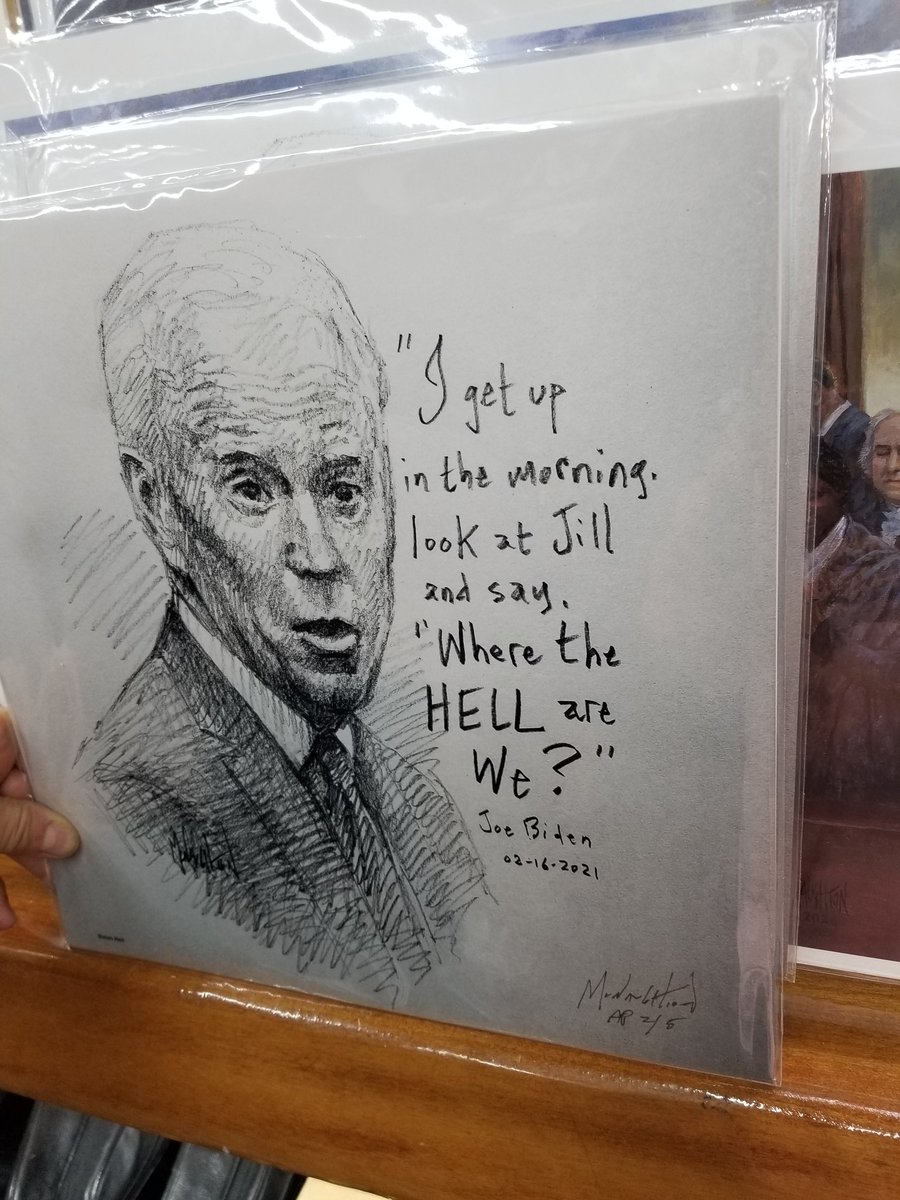 "I get up
in the morning.
look at Jill
and say.
"Where the
HELL are
We?"
Joe Biden
02-16-2021
McNaughton
AP 2/5